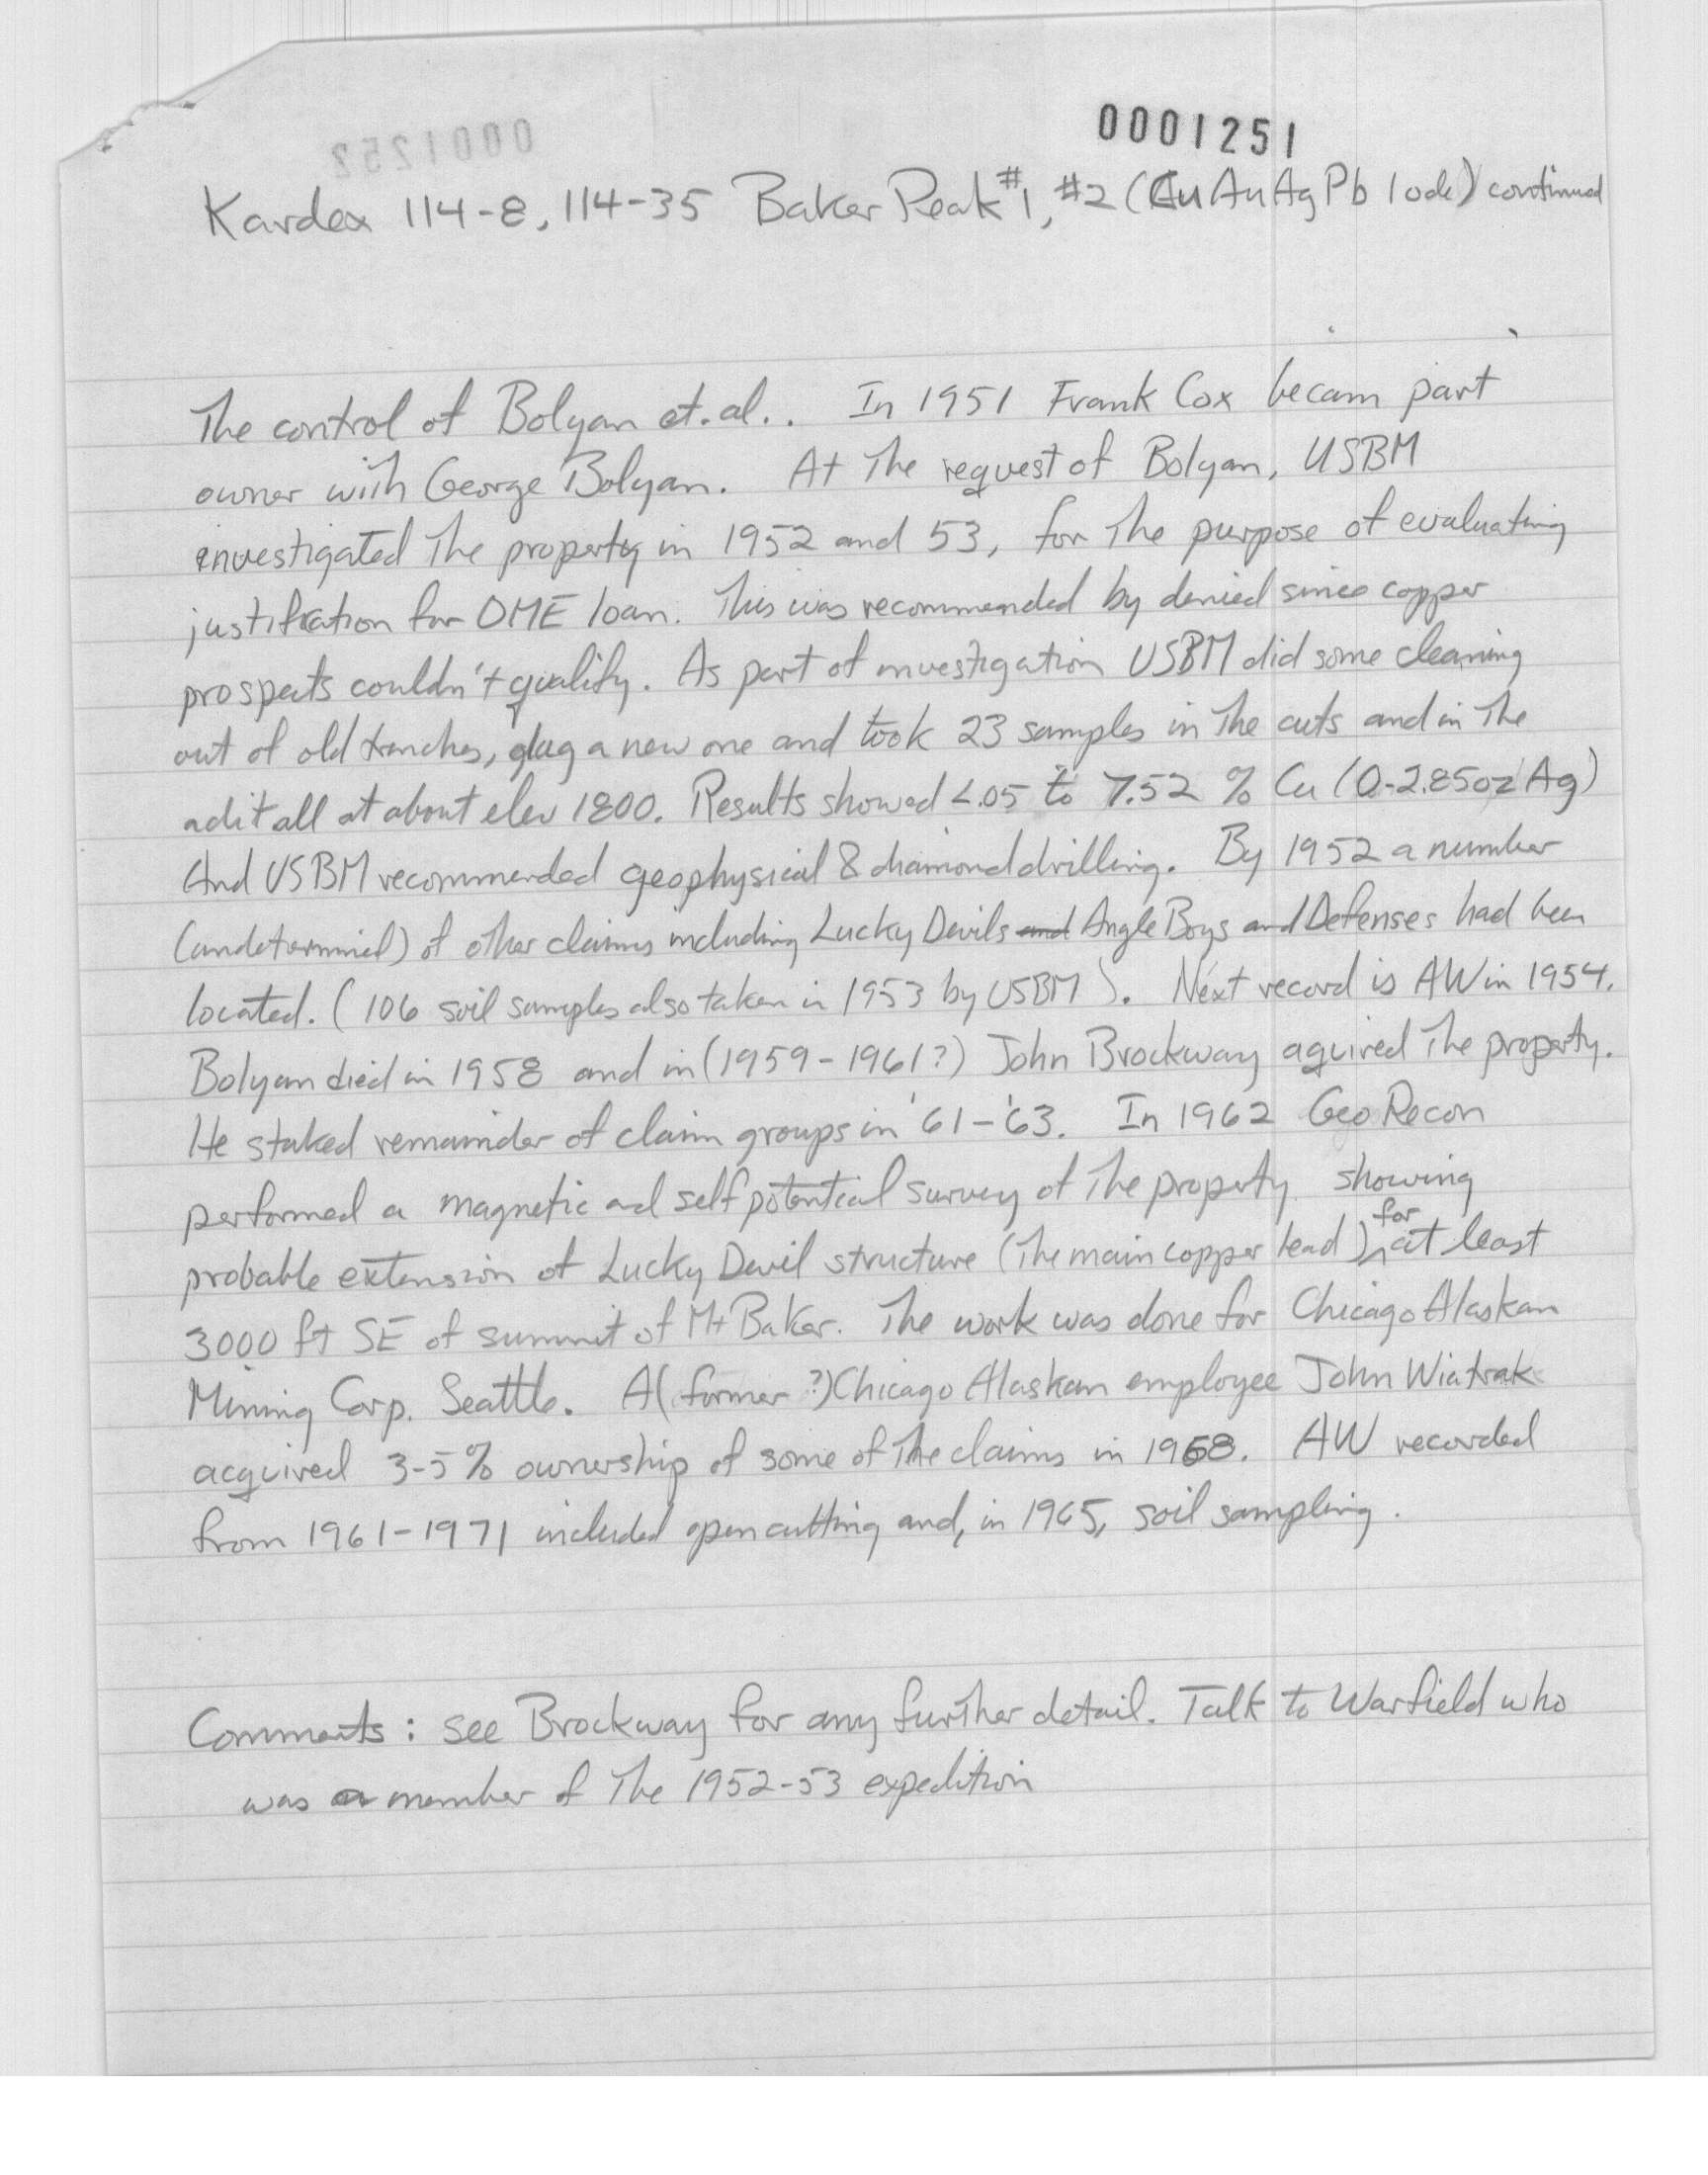 0001251
0001252
Kardex 114-8, 114-35 Baker Peak #1, #2 (Cu Au Ag Pb lode) continued
The control of Bolyan et. al.. In 1951 Frank Cox becam part
owner with George Bolyan. At The request of Bolyan, USBM
investigated The property in 1952 and 53, for The purpose of evaluating
justification for OME loan. This was recommended by denied since copper
prospects couldn't qualify. As part of investigation USBM did some cleaning
out of old trenches, dug a new one and took 23 samples in The cuts and in The
adit all at about elev 1800. Results showed <.05 to 7.52 % Cu (0-2.85oz Ag)
And USBM recommended geophysical & diamond drilling. By 1952 a number
(undetermined) of other claims including Lucky Devils and Angle Boys and Defenses had been
located. (106 soil samples also taken in 1953 by USBM). Next record is AW in 1954.
Bolyan died in 1958 and in (1959-1961?) John Brockway aquired The property.
He staked remainder of claim groups in '61-'63. In 1962 Geo Recon
performed a magnetic ad self potential survey of The property showing
probable extension of Lucky Devil structure (The main copper lead) for at least
3000 ft SE of summit of Mt Baker. The work was done for Chicago Alaskan
Mining Corp. Seattle. A (former?) Chicago Alaskan employee John Wiatrak
acquired 3-5% ownership of some of The claims in 1968. AW recorded
from 1961-1971 included open cutting and, in 1965, soil sampling.
Comments: see Brockway for any further detail. Talk to Warfield who
was a member of The 1952-53 expedition